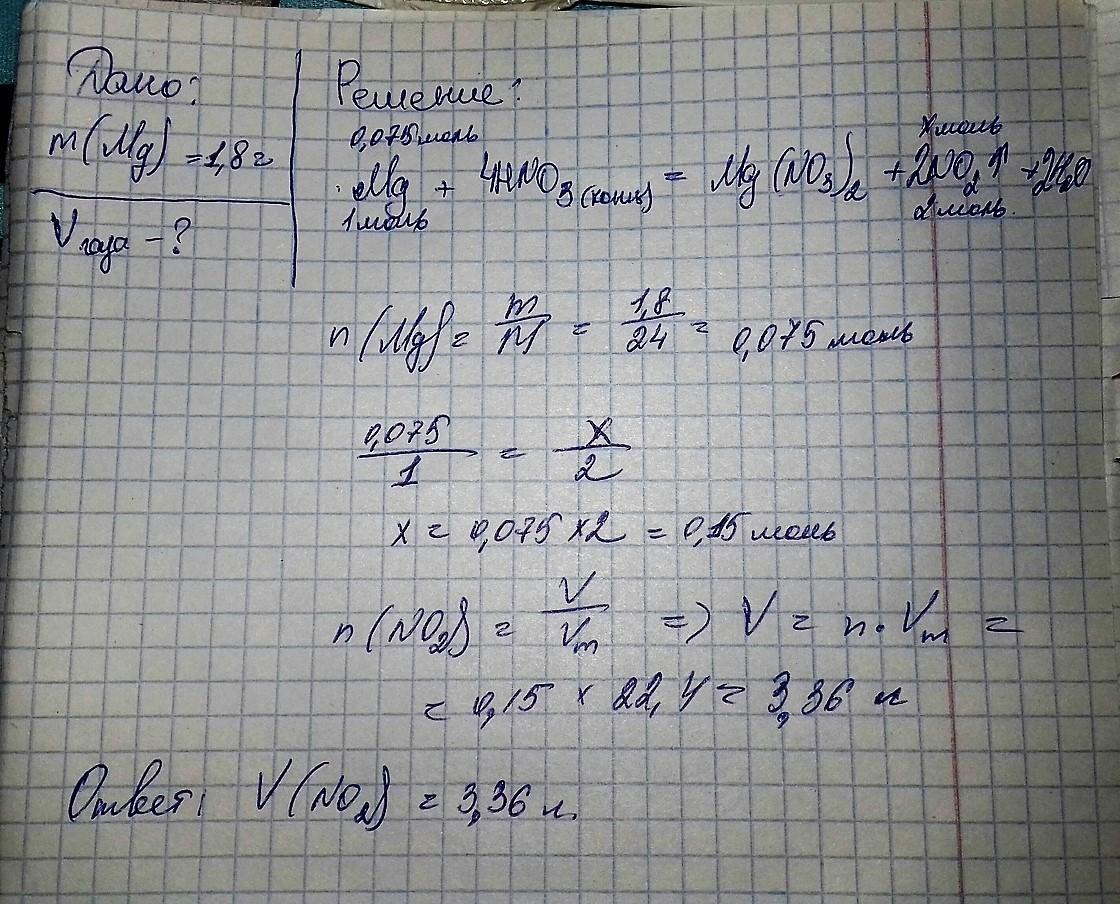 Дано:
m(Mg) = 1,8 г
Vгаза - ?
Решение:
0,075 моль x моль
Mg + 4HNO3(конц) = Mg(NO3)2 + 2NO2↑ + 2H2O
1 моль 2 моль.
n(Mg) = m/M = 1,8/24 = 0,075 моль
0,075/1 = x/2
x = 0,075 × 2 = 0,15 моль
n(NO2) = V/Vm => V = n · Vm =
= 0,15 × 22,4 = 3,36 л
Ответ: V(NO2) = 3,36 л.